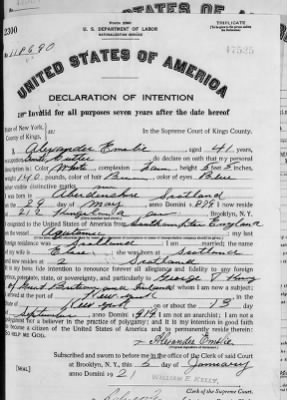 Form 2202
TRIPLICATE
U. S. DEPARTMENT OF LABOR
NATURALIZATION SERVICE
47535
UNITED STATES OF AMERICA
DECLARATION OF INTENTION
Invalid for all purposes seven years after the date hereof
State of New York,
County of Kings,
In the Supreme Court of Kings County.
Alexander Emslie aged 41 years,
Cutter, do declare on oath that my personal
description is: Color White, complexion Fair, height 5 feet inches,
weight 140 pounds, color of hair Brown, color of eyes Blue
other visible distinctive marks
Aberdeenshire Scotland
on the 29 day of May, anno Domini 1879 I now reside
at 212 Brooklyn, N. Y.
I emigrated to the United States of America from Southampton England
on the vessel Aquitania my last
foreign residence was Scotland I am married; the name
of wife is she was born at Scotland
and resides at Scotland
It is my bona fide intention to renounce forever all allegiance and fidelity to any foreign
prince, potentate, state, or sovereignty, and particularly to George V King
of Great Britain and Ireland of whom I am now a subject;
I arrived at the port of New York in the
State of New York on or about the 13 day
of September anno Domini 1919 I am not an anarchist; I am not a
polygamist nor a believer in the practice of polygamy; and it is my intention in good faith
to become a citizen of the United States of America and to permanently reside therein:
SO HELP ME GOD.
Alexander Emslie
Subscribed and sworn to before me in the office of the Clerk of said Court
at Brooklyn, N. Y., this 5 day of January
[SEAL] anno Domini 1921
WILLIAM E. KELLY,
Clerk of the Supreme Court.